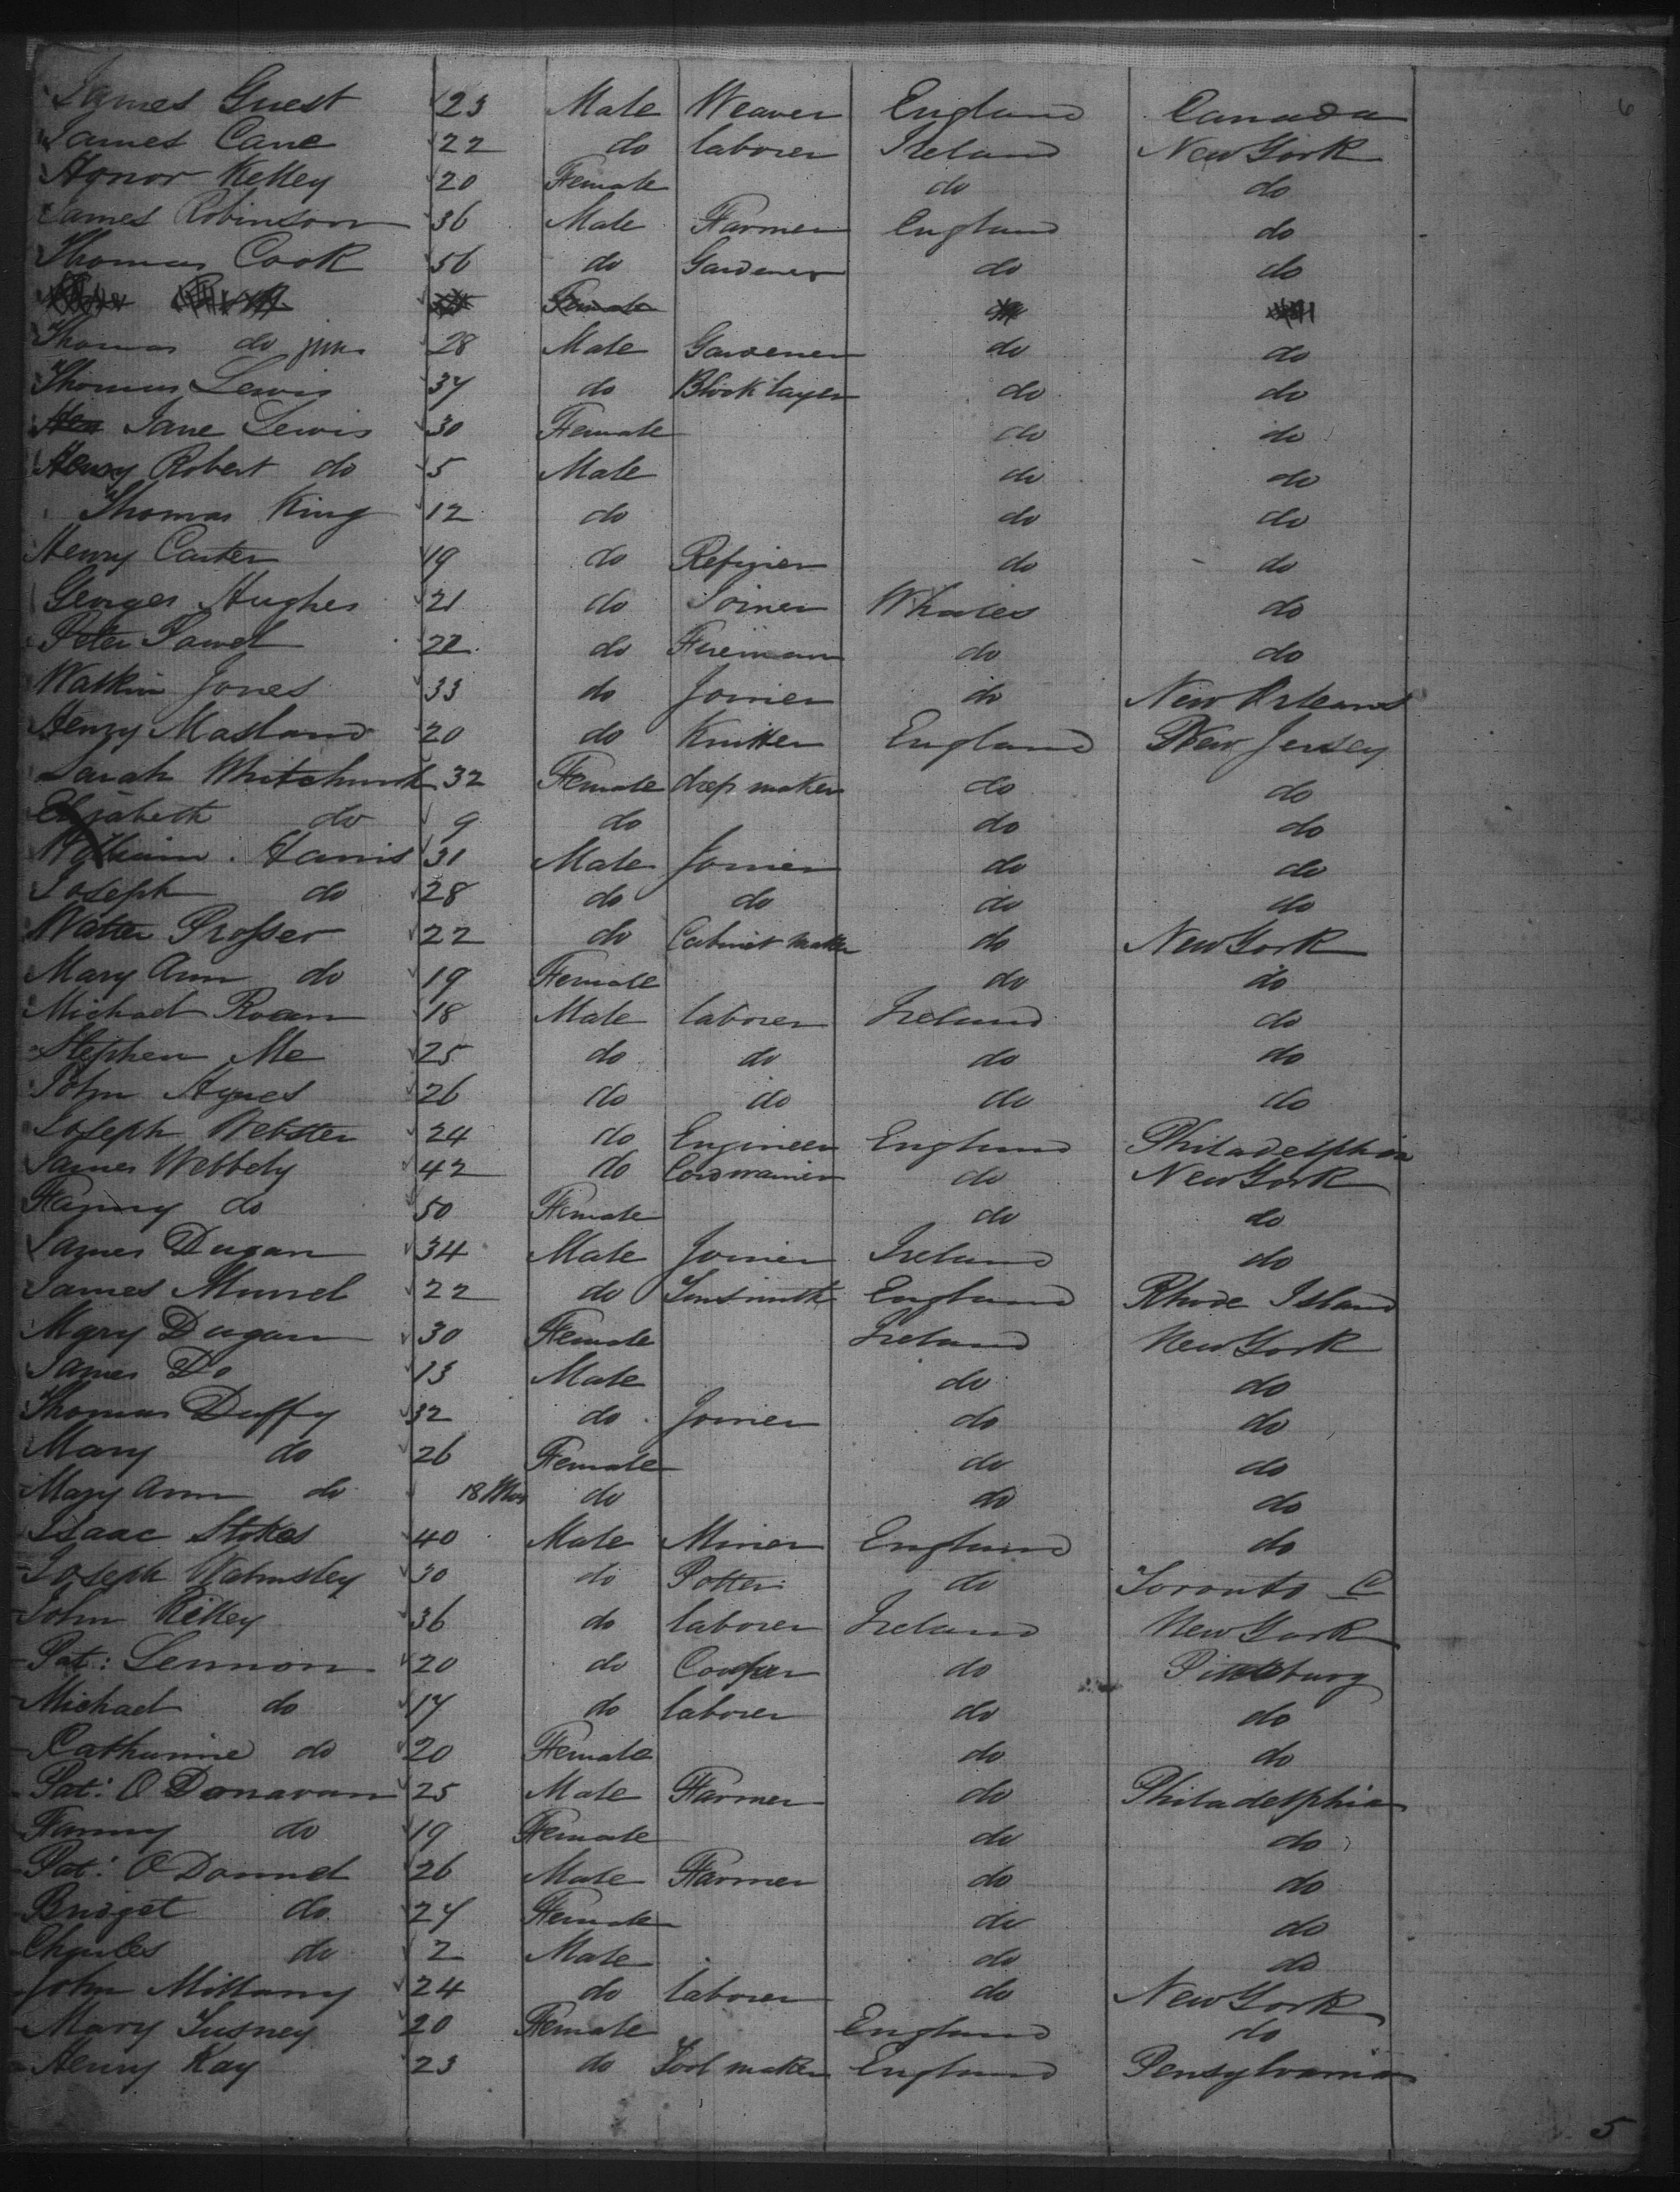 6
James Guest 23 Male Weaver England Canada
James Cane 22 do laborer Ireland New York
Honor Kelley 20 Female do do
James Robinson 36 Male Farmer England do
Thomas Cook 56 do Gardener do do
Female
Thomas do jun 28 Male Gardener do do
Thomas Lewis 37 do Block layer do do
Jane Lewis 30 Female do do
Henry Robert do 5 Male do do
Thomas King 12 do do do
Henry Carter 19 do Refiner do do
Georges Hughes 21 do Joiner Whales do
Peter Powel 22 do Fireman do do
Watkin Jones 33 do Joiner do New Orleans
Henry Masland 20 do Knitter England New Jersey
Sarah Whitehurst 32 Female drep maker do do
Elizabeth do 9 do do do
William Harris 31 Male Joiner do do
Joseph do 28 do do do do
Walter Prosser 22 do Cabinet maker do New York
Mary Ann do 19 Female do do
Michael Roan 18 Male laborer Ireland do
Stephen Me 25 do do do do
John Agnes 26 do do do do
Joseph Webster 24 do Engineer England Philadelphia
James Webbely 42 do Cordwainer do New York
Fanny do 50 Female do do
James Dugan 34 Male Joiner Ireland do
James Munel 22 do England Rhode Island
Mary Dugan 30 Female Ireland New York
James Do 13 Male do do
Thomas Duffy 32 do Joiner do do
Mary do 26 Female do do
Mary Ann do 18 Mos do do do
Isaac Stokes 40 Male Miner England do
Joseph Walmsley 30 do Potter do Toronto C
John Kelley 36 do laborer Ireland New York
Pat: Lennon 20 do Cooper do Pittsburg
Michael do 17 do laborer do do
Catharine do 20 Female do do
Pat: O Donavan 25 Male Farmer do Philadelphia
Fanny do 19 Female do do
Pat: O Donnel 26 Male Farmer do do
Bridget do 27 Female do do
Charles do 2 Male do do
John Millany 24 do laborer do New York
Mary Tusney 20 Female England do
Henry Kay 23 do Tool maker England Pensylvania
5